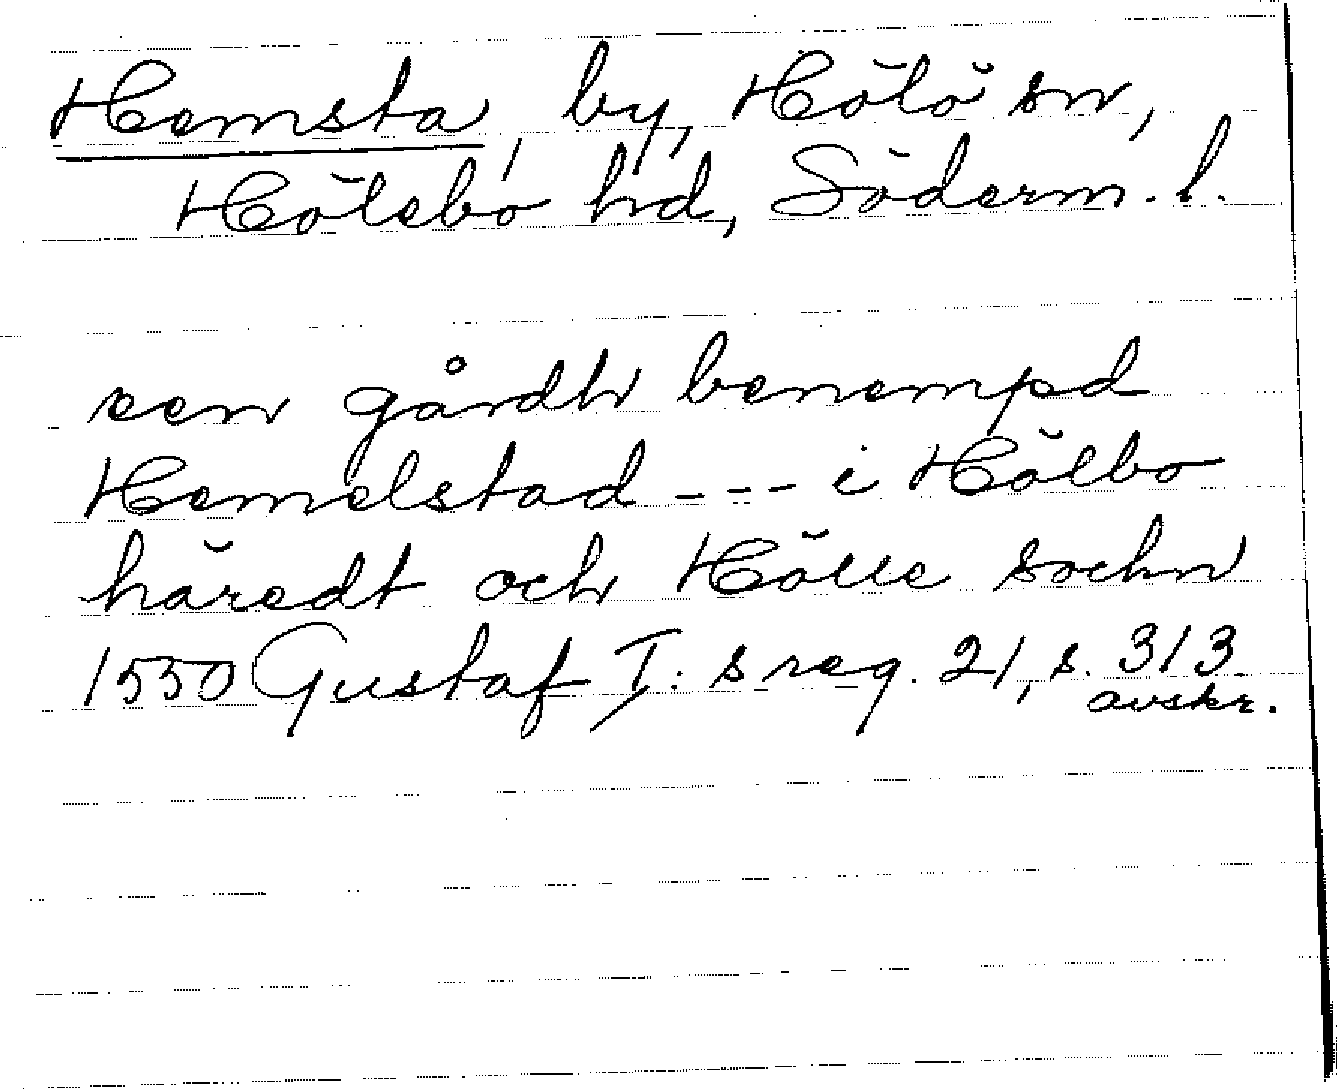 Hemsta, by, Hölö sn,
Hölebo hd, Söderm. l.
een gårdh benempd
Hemelstad --- i Hölbo
häredt och Hölle sochn
1550 Gustaf I:s reg. 21, s. 313.
avskr.